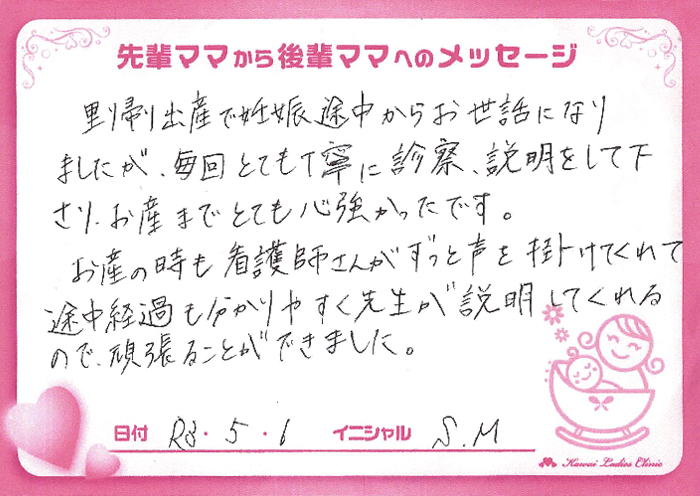 先輩ママから後輩ママへのメッセージ
里り帰り出産で妊娠途中からお世話になり
ましたが、毎回とても丁寧に診察、説明をして下
さり、お産までとても心強かったです。
お産の時も看護師さんがずっと声を掛けてくれて
途中経過も分かりやすく先生が説明してくれる
ので、頑張ることができました。
日付 R3・5・6 イニシャル S.M
Kawai Ladies Clinic